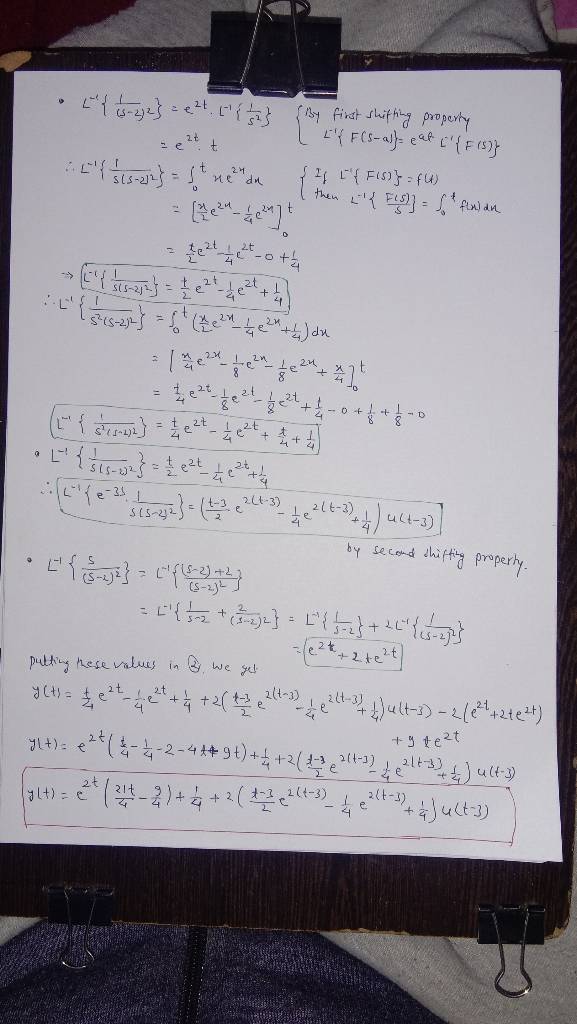 • L⁻¹{1/(s-2)²} = e^{2t}. L⁻¹{1/s²} {By first shifting property
L⁻¹{F(s-a)} = e^{at} L⁻¹{F(s)}
= e^{2t}. t
∴ L⁻¹{1/s(s-2)²} = ∫₀^t x e^{2x} dx {If L⁻¹{F(s)} = f(t)
then L⁻¹{F(s)/s} = ∫₀^t f(x) dx
= [x/2 e^{2x} - 1/4 e^{2x}]₀^t
= t/2 e^{2t} - 1/4 e^{2t} - 0 + 1/4
⇒ L⁻¹{1/s(s-2)²} = t/2 e^{2t} - 1/4 e^{2t} + 1/4
∴ L⁻¹{1/s²(s-2)²} = ∫₀^t (x/2 e^{2x} - 1/4 e^{2x} + 1/4) dx
= [x/4 e^{2x} - 1/8 e^{2x} - 1/8 e^{2x} + x/4]₀^t
= t/4 e^{2t} - 1/8 e^{2t} - 1/8 e^{2t} + t/4 - 0 + 1/8 + 1/8 - 0
L⁻¹{1/s²(s-2)²} = t/4 e^{2t} - 1/4 e^{2t} + t/4 + 1/4
• L⁻¹{1/s(s-2)²} = t/2 e^{2t} - 1/4 e^{2t} + 1/4
∴ L⁻¹{e^{-3s} 1/s(s-2)²} = (t-3/2 e^{2(t-3)} - 1/4 e^{2(t-3)} + 1/4) u(t-3)
by second shifting property.
• L⁻¹{s/(s-2)²} = L⁻¹{(s-2)+2/(s-2)²}
= L⁻¹{1/s-2 + 2/(s-2)²} = L⁻¹{1/s-2} + 2L⁻¹{1/(s-2)²}
= e^{2t} + 2te^{2t}
putting these values in ②, we get
y(t) = t/4 e^{2t} - 1/4 e^{2t} + 1/4 + 2(t-3/2 e^{2(t-3)} - 1/4 e^{2(t-3)} + 1/4) u(t-3) - 2(e^{2t} + 2te^{2t})
+ 9te^{2t}
y(t) = e^{2t}(t/4 - 1/4 - 2 - 4t + 9t) + 1/4 + 2(t-3/2 e^{2(t-3)} - 1/4 e^{2(t-3)} + 1/4) u(t-3)
y(t) = e^{2t}(21t/4 - 9/4) + 1/4 + 2(t-3/2 e^{2(t-3)} - 1/4 e^{2(t-3)} + 1/4) u(t-3)